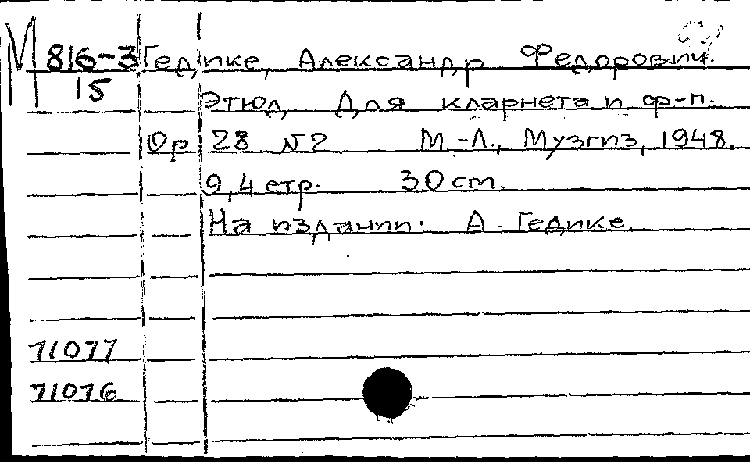 М 816-3 Гедике, Александр Федорович.
15
Этюд. Для кларнета и ф-п.
Ор 28 №2 М.-Л., Музгиз, 1948.
9,4 стр. 30 cm.
На издании: А. Гедике.
71077
71076